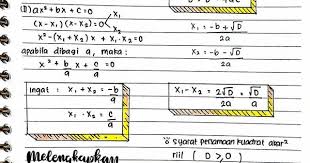 (1) ax² + bx + c = 0
(x - x₁) (x - x₂) = 0 < x₁ x₂
x² - (x₁ + x₂) x + x₁ · x₂ = 0
apabila dibagi a, maka :
x² + b/a x + c/a = 0
Ingat : x₁ + x₂ = -b/a
x₁ · x₂ = c/a
Melengkapkan
x₁ = -b + √D / 2a
x₂ = -b - √D / 2a
x₁ - x₂ = 2√D / 2a = √D / a
syarat persamaan kuadrat akar²
riil ( D ≥ 0 )